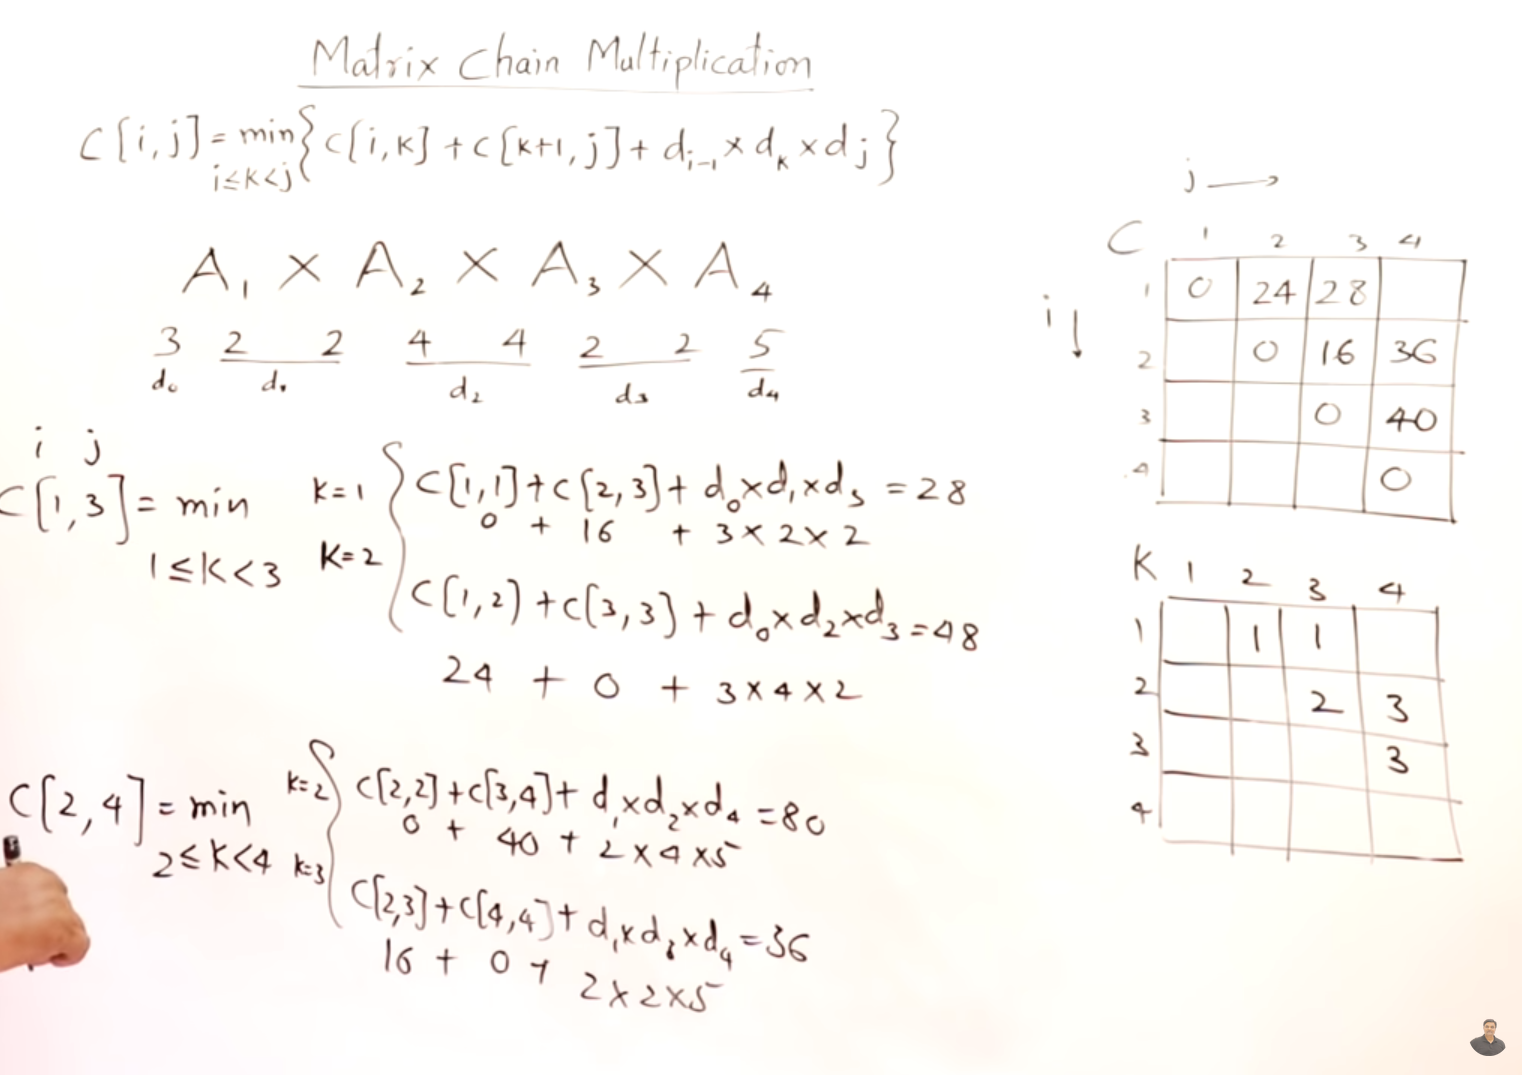 Matrix Chain Multiplication
C[i,j] = min { C[i,k] + C[k+1,j] + di-1 × dk × dj }
i≤k<j
A1 × A2 × A3 × A4
3 2 2 4 4 2 2 5
d0 d1 d2 d3 d4
i j
C[1,3] = min
1≤k<3
k=1 C[1,1] + C[2,3] + d0×d1×d3 = 28
0 + 16 + 3×2×2
k=2 C[1,2) + C[3,3) + d0×d2×d3 = 48
24 + 0 + 3×4×2
C[2,4] = min
2≤k<4
k=2 C[2,2] + C[3,4] + d1×d2×d4 = 80
0 + 40 + 2×4×5
k=3 C[2,3] + C[4,4] + d1×d3×d4 = 36
16 + 0 + 2×2×5
j →
C 1 2 3 4
i ↓
1 0 24 28
2 0 16 36
3 0 40
4 0
K 1 2 3 4
1 1 1
2 2 3
3 3
4